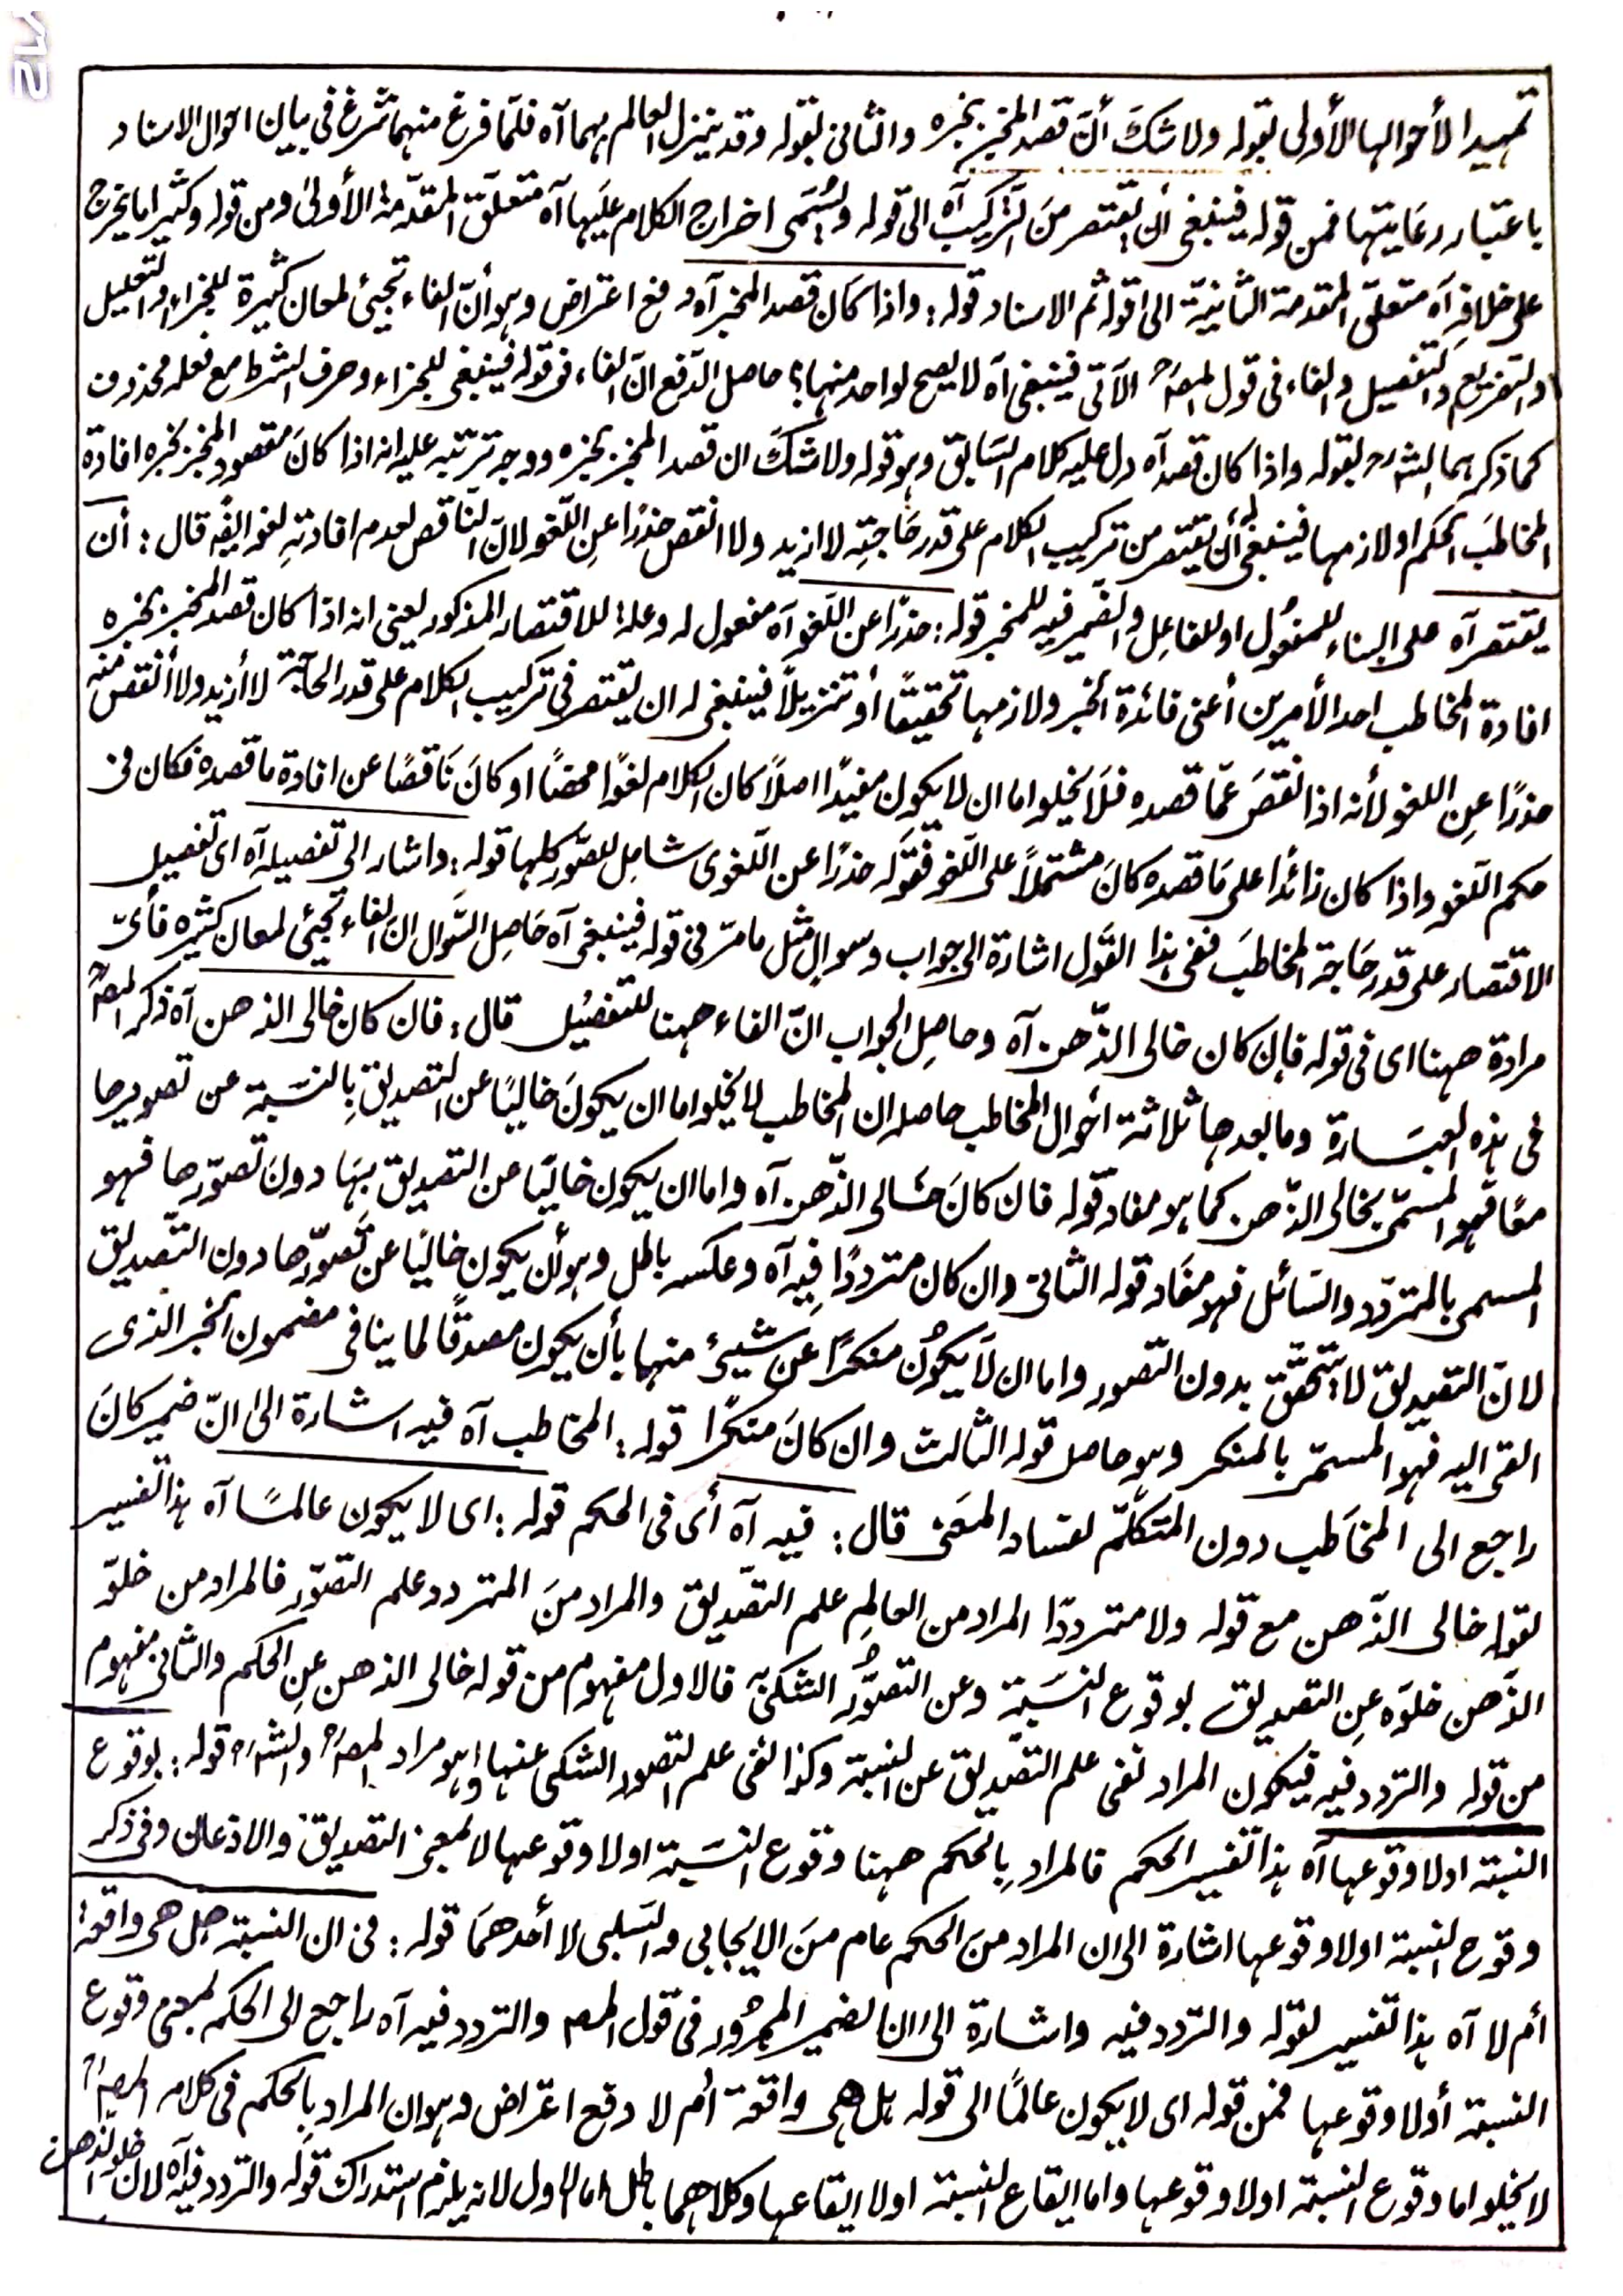 تمهيدا لأحوالها الأولى بقوله ولا شكَ أنّ قصد المخبر بخبره والثانى بقوله وقد ينزل العالم بهما آه فلمّا فرغ منهما شرع فى بيان احوال الاسناد
باعتبار رعَايتها فمن قوله فينبغى أن يقتصر منَ التركيب آه الى قوله ويُسمّى اخراج الكلام عليها آه متعلّق المقدّمة الأولىٰ ومن قوله وكثيرا ما يخرج
على خلافِه آه متعلق المقدمة الثانيّة الى قوله ثم الاسناد قوله: واذا كان قصد المخبر آه دفع اعتراض وهو أنّ الفاء تجيئ لمعان كثيرة للجزاء والتعليل
والتفريع والتفصيل والفاء فى قول المصؒ الآتى فينبغى آه لا يصح لواحد منها؟ حاصل الدّفع انّ الفاء فى قوله فينبغى للجزاء وحرف الشرط مع فعله محذوف
كما ذكرهما الشؒ بقوله واذا كان قصد آه دل عليه كلام السّابق وهو قوله ولا شكَ ان قصد المخبر بخبره ووجه ترتبه عليه انه اذا كانَ مقصود المخبر بخبره افادة
المخاطبَ الحكم او لازمها فينبغى أن يقتصر من تركيب الكلام على قدر حَاجتِه لا ازيد ولا انقص حذرًا عنِ اللّغو لانّ النّاقص لعدم افادتهِ لغو ايضًا قال: أن
يقتصر آه على البناء للمفعُول او للفاعِل والضّمير فيه للمخبر قوله: حذرًا عن اللّغو آه مفعول له وعلة للاقتصار المذكور يعنى انه اذا كان قصد المخبر بخبره
افادة المخاطب احد الأمرين أعنى فائدة الخبر ولازمها تحقيقًا أو تنزيلاً فينبغى له ان يقتصر فى تركيب الكلام على قدر الحاجة لا أزيد ولا أنقص منه
حذرًا عنِ اللغو لأنه اذا نقصَ عمّا قصده فلَا يخلو اما ان لا يكون مفيدًا اصلاً كان الكلام لغوًا محضًا او كانَ نَاقصًا عن افادة ما قصده فكان فى
حكم اللّغو واذا كان زائدا على مَا قصده كانَ مشتملاً على اللّغو فقوله حذرًا عن اللّغوى شامل للصّور كلها قوله: واشار الى تفصيله آه اى تفصيل
الاقتصار على قدر حَاجة المخاطبَ ففى هذا القَول اشارة الى جواب وسوال مثل ما مرّ فى قوله فينبغى آه حَاصِل السّوال ان الفاء تجيئ لمعان كثيره فأىّ
مرادة ههنا اى فى قوله فإن كان خالى الذّهن آه وحاصِل الجواب انّ الفاء ههنا للتفصُيل قال: فان كان خالى الذهن آه ذكر المصؒ
فى هذه العبَسارة وما بعدها ثلاثة أحوال المخاطب حاصله ان المخاطب لا يخلو اما ان يكونَ خاليًا عن التصديق بِالنسبَة عن تصويرها
معًا فهو المسمّى بخالى الذّهن كما هو مفاد قوله فان كانَ خالى الذّهن آه واما ان يكون خاليًا عن التصديق بهَا دونَ تصوّرها فهو
المسمى بالمتردّد والسّائل فهو مفَاد قوله الثانى وان كان مترددًا فِيه آه وعكسه باطل وهو أن يكون خاليًا عن تصَوّرها دون التّصديق
لانّ التصديق لا يتحقّق بدون التصور واما ان لَا يكوُن منكرًا عن شيئ منها بأن يكون مصدقًا لما ينافى مضمون الخبر الذى
القى اليه فهو المسمّى بالمنكر وهو حاصل قوله الثالث وان كانَ منكرًا قوله: المخاطب آه فيه اشارة الى انّ ضمير كانَ
راجع الى المخَاطب دون المتكلّم لفساد المعَنى قال: فيه آه أى فى الحكم قوله: اى لا يكون عالمًا آه هذا تفسير
لقوله خالى الذّهن مع قوله ولا مترددًا المراد من العالِم علم التصّديق والمراد منَ المتردد علم التصوّر فالمراد من خلوّ
الذّهن خلوّه عنِ التصديق بوقوع النسَبة وعن التصوُّر الشكىّ فالاول مفهوم من قوله خالى الذهن عنِ الحكم والثانى مفهوم
من قوله والتردد فيه فيكون المراد نفى علم التصّديق عن النسبة وكذا نفى علم التصور الشكى عنها وهو مراد المصؒ والشؒ قوله: بوقوع
النسبة اولا وقوعها آه هذا تفسير الحكم فالمراد بِالحكم ههنا وقوع النسَبة اولا وقوعها لا بمعنى التصديق والاذعان وفى ذكر
وقوع النسبة اولا وقوعها اشارة الى ان المراد منَ الحكم عام منَ الايجَابى والسّلبى لا أحدهمَا قوله: فى ان النسبة هل هى واقعة
أم لا آه هذا تفسير لقوله والتردد فيه واشارة الى ان الضمير المجرُور فى قول المصؒ والتردد فيه آه راجع الى الحكم بمعنى وقوع
النسبة أولا وقوعها فمن قوله اى لا يكون عالمًا الى قوله هل هى واقعة أم لا دفع اعتراض وهو ان المراد بِالحكم فى كلام المصؒ
لا يخلو اما وقوع النسبة اولا وقوعها واما ايقاع النسبة اولا ايقاعها وكلاهما باطل اما الاول لانه يلزم استدراك قوله والتردد فيه آه لان خلو الذهن